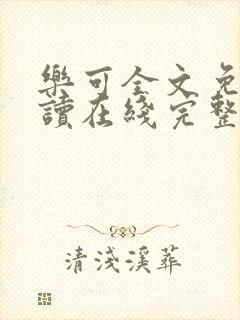 樂可全文免
讀在綫完整
清淺溪葬